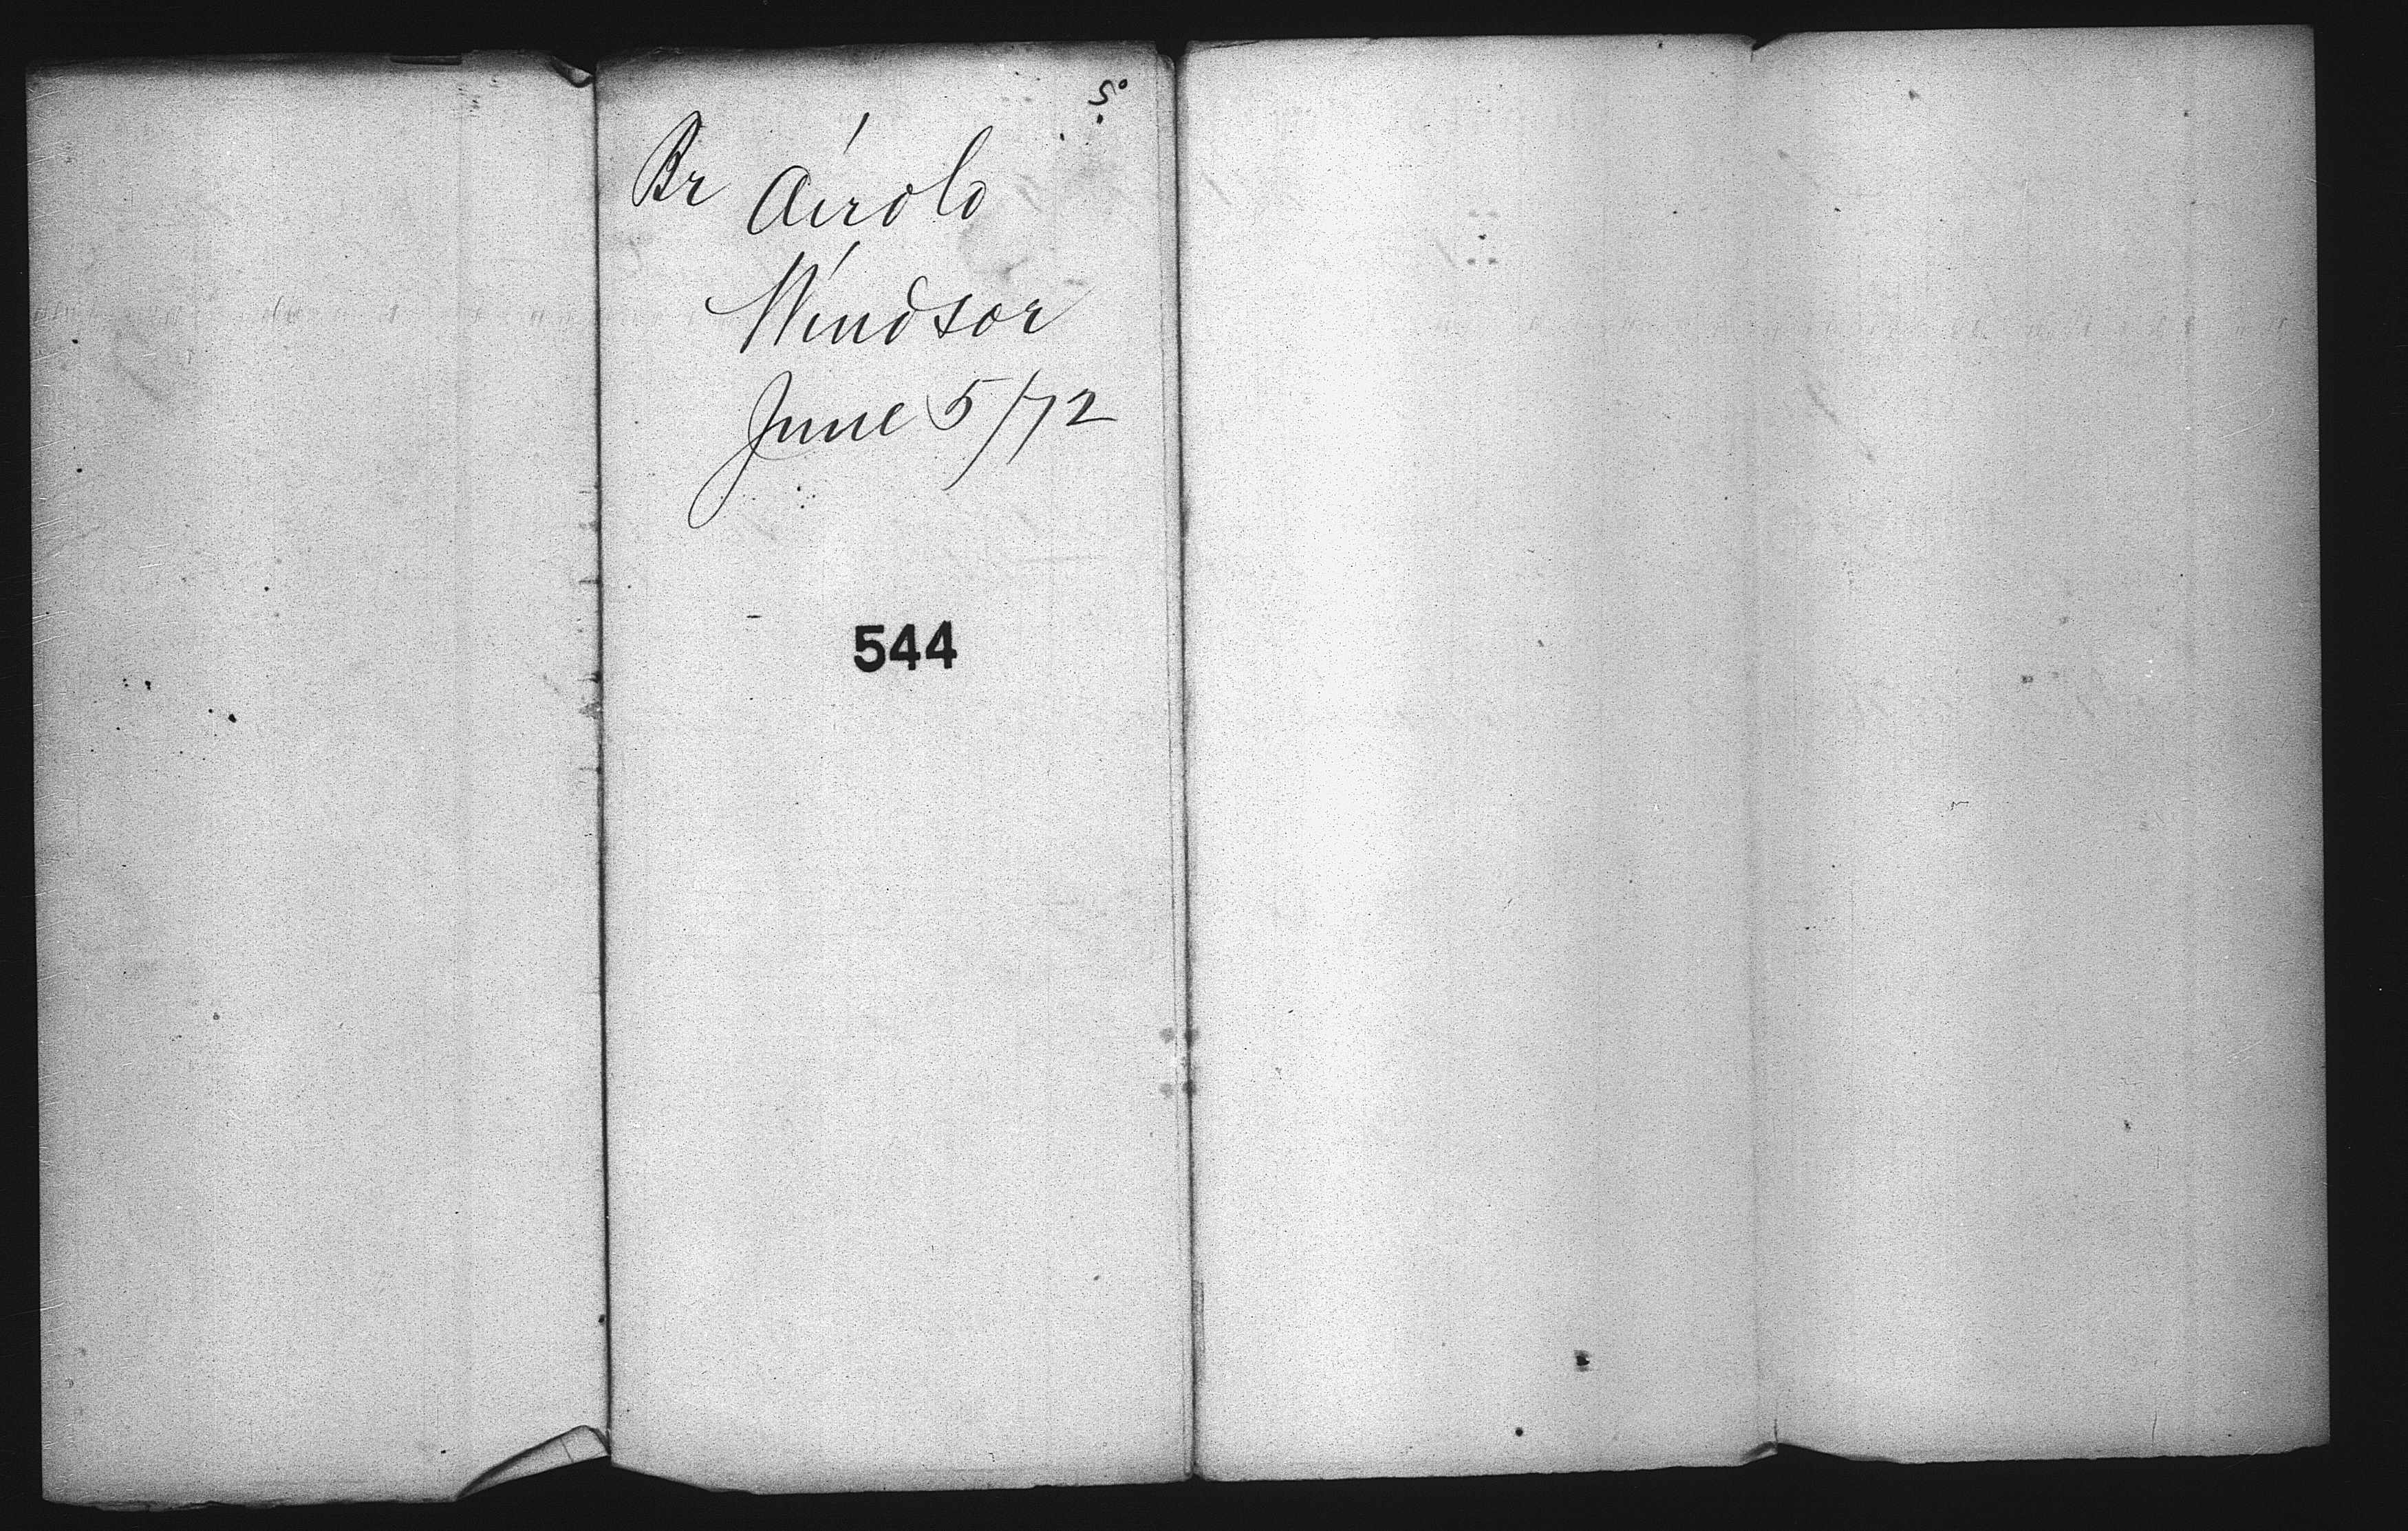 Br Airolo
Windsor
June 5/72
544